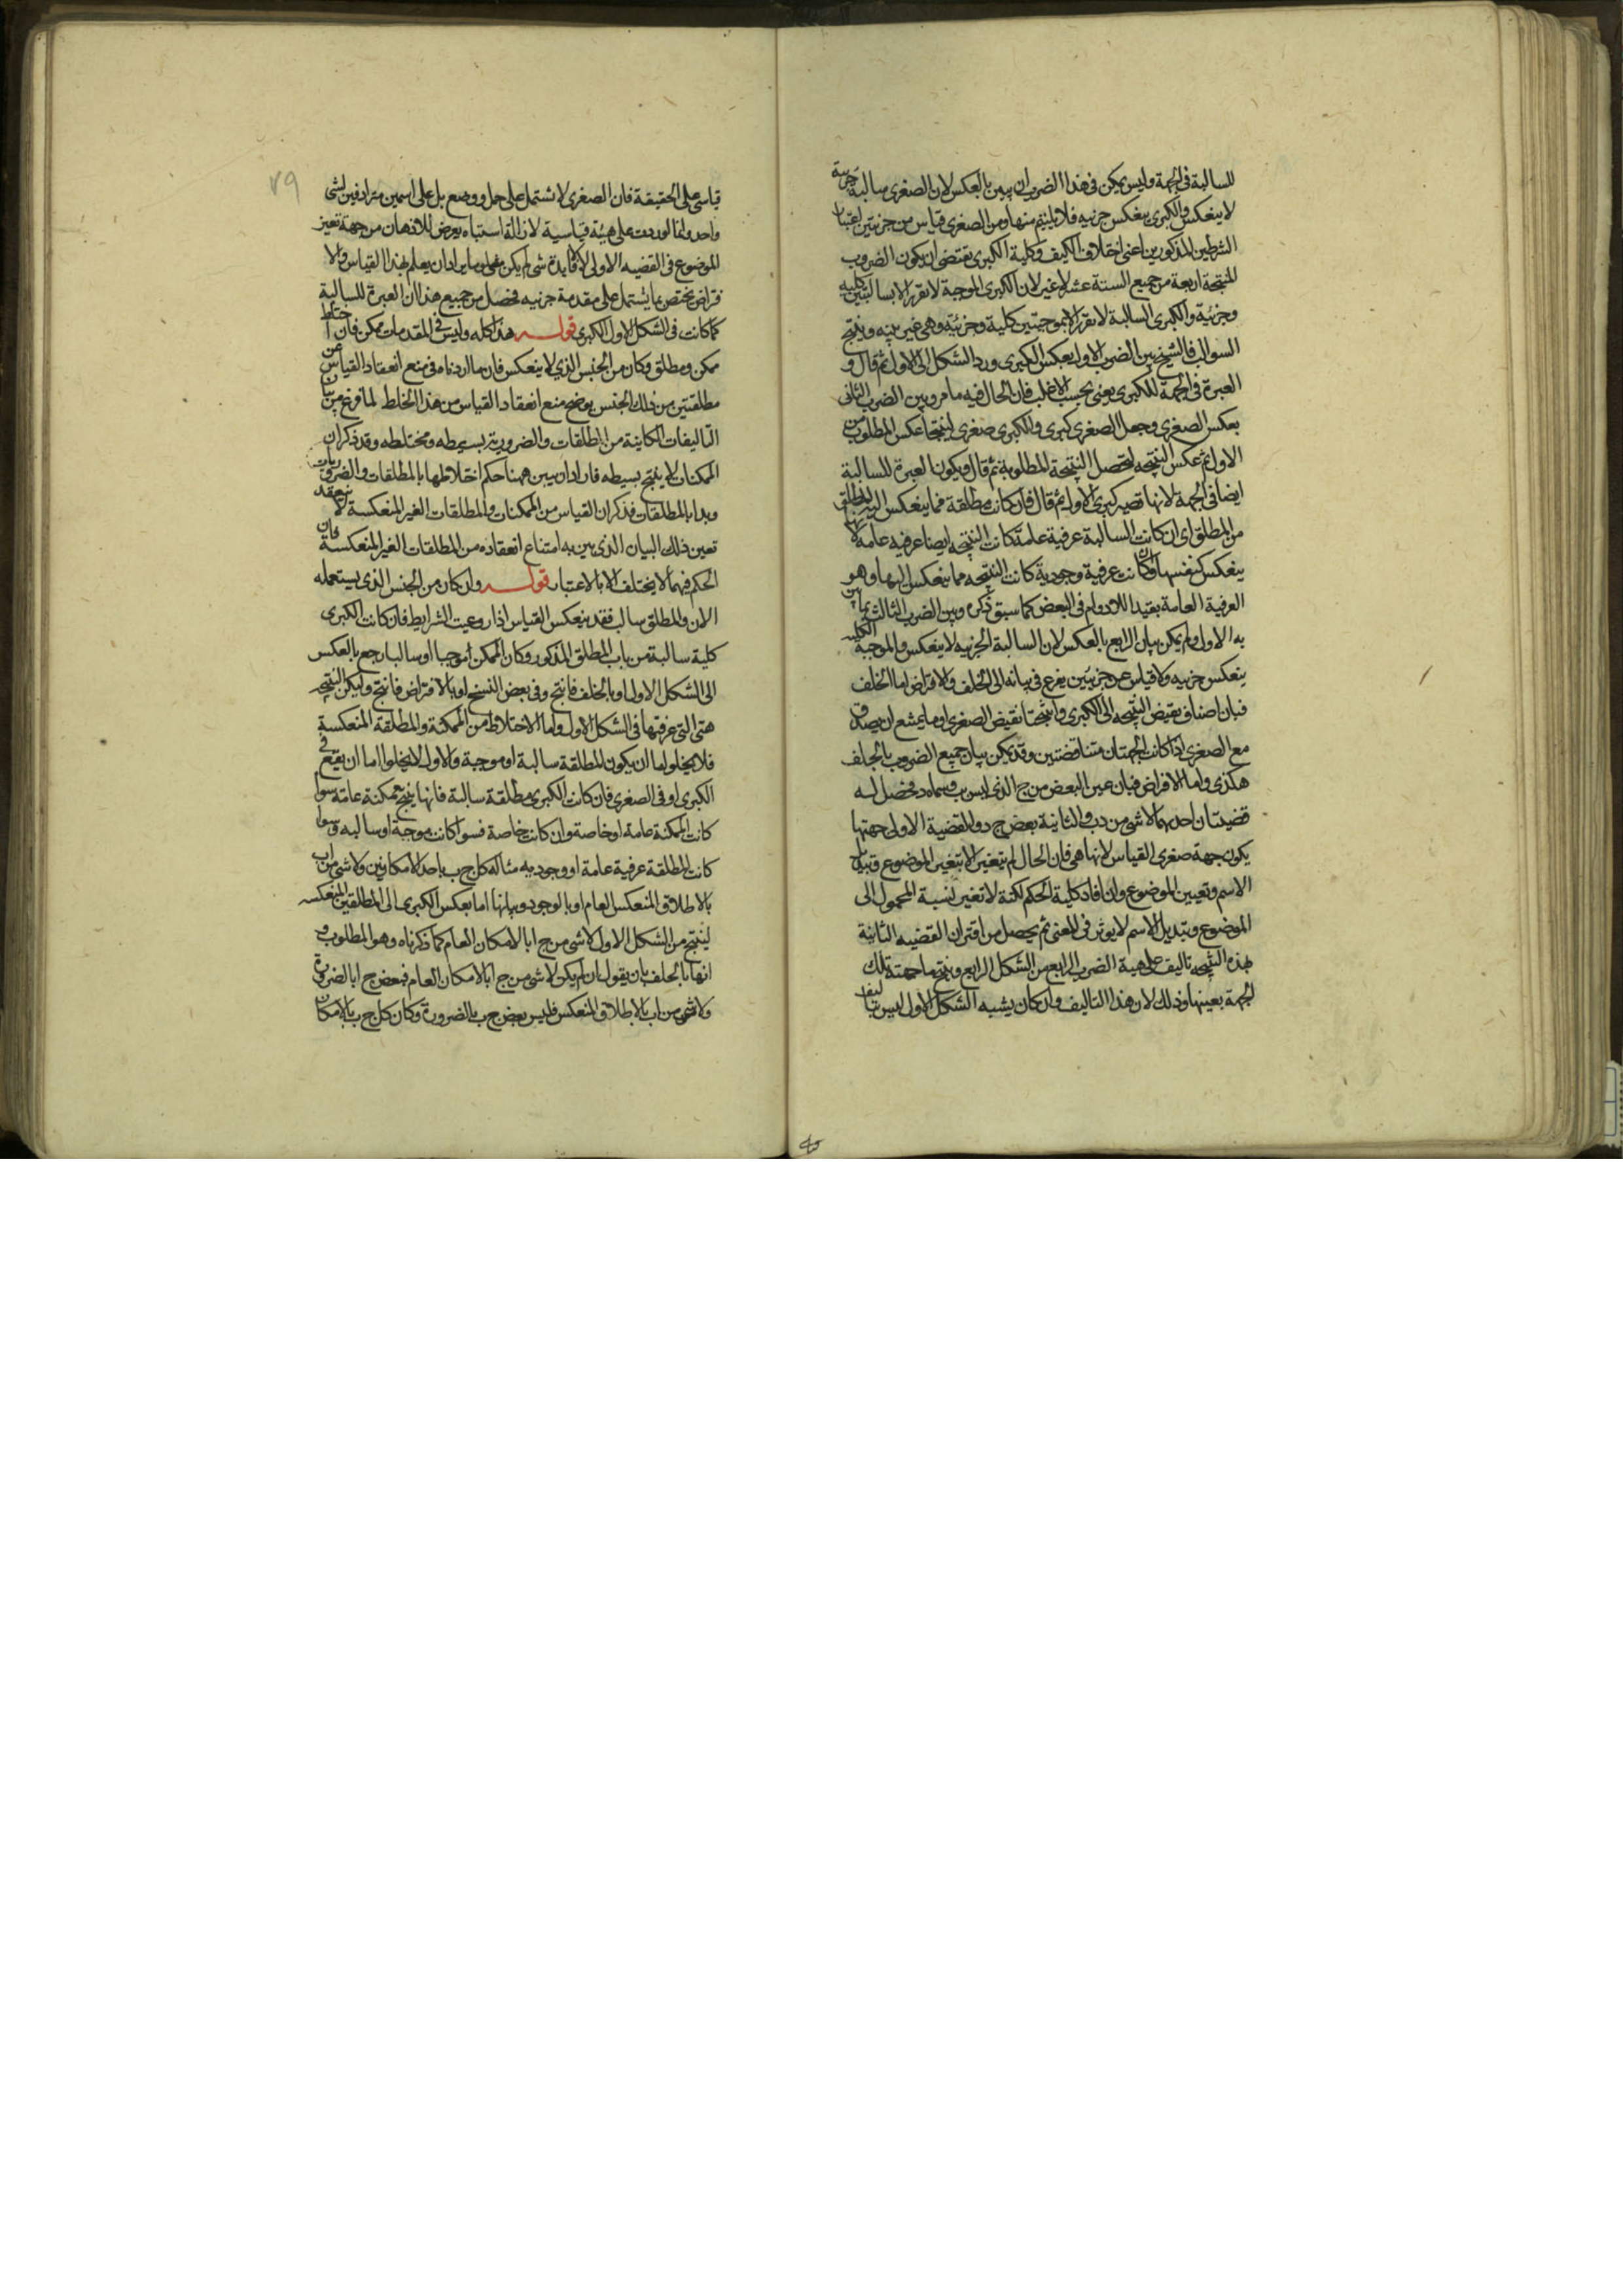 للسالبة في الجهة وليس يمكن في هذا الضرب ان يبين بالعكس لان الصغرى سالبة جزية
لا ينعكس والكبرى ينعكس جزييه فلا يلتيم منها ومن الصغرى قياس من جزيتين اعتبار
الشرطين المذكورين اعني اختلاف الكيف وكلية الكبرى يقتضى ان يكون الضروب
المنتجة اربعة من جميع الستة عشر لا غير لان الكبرى الموجبة لا تقرن الا بسالبتين كلية
وجزئية والكبرى السالبة لا تقرن الا بموجبتين كلية وجزئية وهي غير بينه وينتج
السوالب فالشيخ بين الضرب الاول بعكس الكبرى ورد الشكل الى الاول ثم قال و
العبرة في الجهة للكبرى يعنى بحسب الاغلب فان الحال فيه ما مر وبين الضرب الثانى
بعكس الصغرى وجعل الصغرى كبرى والكبرى صغرى لينتجا عكس المطلوب من
الاول ثم عكس النتيجه لتحصل النتيجة المطلوبة ثم قال ويكون العبرة للسالبة
ايضا في الجهة لانها تصير كبرى الاول ثم قال فان كانت مطلقة فما ينعكس اليه المطلق
من المطلق اى ان كانت السالبة عرفية عامة كانت النتيجه ايضا عرفيه عامه لانها
ينعكس كنفسها وان كانت عرفية وجودية كانت النتيجه مما ينعكس اليها وهو
العرفية العامة بقيد اللادوام في البعض كما سبق ذكره وبين الضرب الثالث بما بين
به الاول ولم يمكن بيان الرابع بالعكس لان السالبة الجزييه لا ينعكس والموجبة الكليه
ينعكس جزييه ولا قياس عن جزئيتين يفزع في بيانه الى الخلف والافتراض اما الخلف
فبان اضاف نقيض النتيجه الى الكبرى وانتجتا نقيض الصغرى او ما يمتنع ان يصدق
مع الصغرى اذا كانت الجهتان متناقضتين وقد يمكن بيان جميع الضروب بالخلف
هكذى واما الافتراض فبان عين البعض من ج الذى ليس ب وسماه د فحصل له
قضيتان احديهما لا شى من د ب والثانية بعض ج د والقضية الاولى جهتها
يكون جهة صغرى القياس لانها هي فان الحال لم يتغير الا بتغير الموضوع وتبديل
الاسم وتعيين الموضوع وان افاد كلية الحكم لكنة لا تغير نسبة المحمول الى
الموضوع وتبديل الاسم لا يوثر في المعنى ثم يحصل من اقتران القضيه الثانية
بهذه النتيجه تاليف على هيية الضرب الرابع من الشكل الرابع وينتج ما جهته تلك
الجهة بعينها وذلك لان هذا التاليف وان كان يشبه الشكل الاول ليس بتاليف
٧٩
قياسى على الحقيقة فان الصغرى لا تشتمل على حمل ووضع بل على اسمين مترادفين لشى
واحد وانما اوردت على هيئة قياسية لازالة اشتباه يعرض للاذهان من جهة تغير
الموضوع في القضيه الاولى لا لافايدة شى لم يكن معلوما يراد ان يعلم بهذا القياس والا
فتراض يختص بما يشتمل على مقدمة جزييه فحصل من جميع هذا ان العبرة للسالبة
كما كانت في الشكل الاول للكبرى قوله هذا كله وليس في المقدمات ممكن فان اختلط
ممكن ومطلق وكان من الجنس الذي لا ينعكس فان ما اوردناه في منع انعقاد القياس عن
مطلقتين من ذلك الجنس يوضح منع انعقاد القياس من هذا الخلط لما فرغ من بيان
التاليفات الكاينة من المطلقات والضرورية بسيطه ومختلطه وقد ذكر ان
الممكنات لا ينتج بسيطه فاراد ان يبين ههنا حكم اختلاطها بالمطلقات والضروريات
وبدا بالمطلقات فذكر ان القياس من الممكنات والمطلقات الغير المنعكسة لا ينعقد
تعين ذلك البيان الذي بين به امتناع انعقاده من المطلقات الغير المنعكسة فان
الحكم فيهما لا يختلف الا بالاعتبار قوله وان كان من الجنس الذى يستعمله
الان والمطلق سالب فقد ينعكس القياس اذا روعيت الشرايط فان كانت الكبرى
كلية سالبة من باب المطلق المذكور وكان الممكن موجبا او سالبا رجع بالعكس
الى الشكل الاول او بالخلف فانتج وفى بعض النسخ او بالافتراض فانتج وليكن النتيجه
هى التى عرفتها في الشكل الاول واما الاختلاط من الممكنة والمطلقة المنعكسة
فلا يخلو اما ان يكون المطلقة سالبة او موجبة والاول لا يخلوا اما ان يقع في
الكبرى او في الصغرى فان كانت الكبرى مطلقة سالبة فانها ينتج ممكنة عامة سوا
كانت الممكنة عامة او خاصة وان كانت خاصة فسوا كانت موجبة او سالبه وسوا
كانت المطلقة عرفية عامة او وجوديه مثاله كل ج ب باحد الامكانين ولا شى من ا ب
بالاطلاق المنعكس العام او بالوجودى بيانها اما بعكس الكبرى الى المطلقين المنعكسه
لينتج من الشكل الاول لا شى من ج ا بالامكان العام كما ذكرناه وهو المطلوب و
اتها بالخلف بان يقول ان لم يكن لا شى من ج ا بالامكان العام فبعض ج ا بالضرورة
ولا شى من ا ب بالاطلاق المنعكس فليس بعض ج ب بالضرورة وكان كل ج ب بالامكان